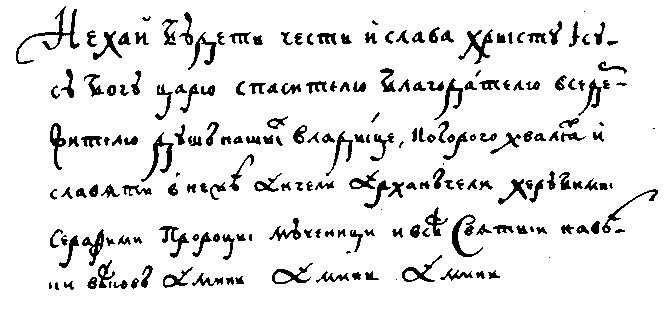 Нехай бꙋдеть честь и слава хрысту Ісу-
съ богу царю спасителю благодателю
душъ нашыⷯ владыце, которого хвалꙗⷮ и
славꙗть в неиⷨ ангели архангели херувими
серафими пророцы мꙋченици и вси свѧтыи на вѣ-
ки вѣкѡвъ аминь аминь аминь